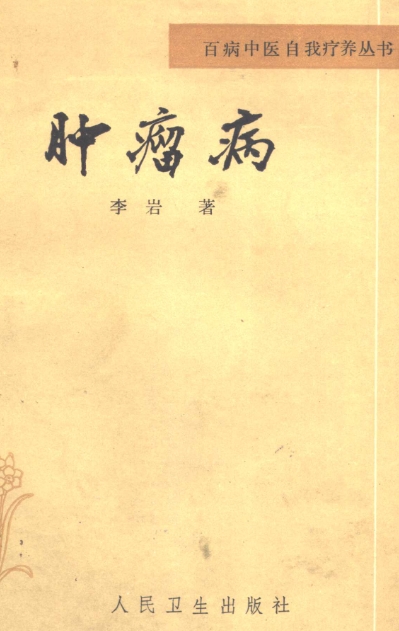 百病中医自我疗养丛书
肿瘤病
李岩 著
人民卫生出版社